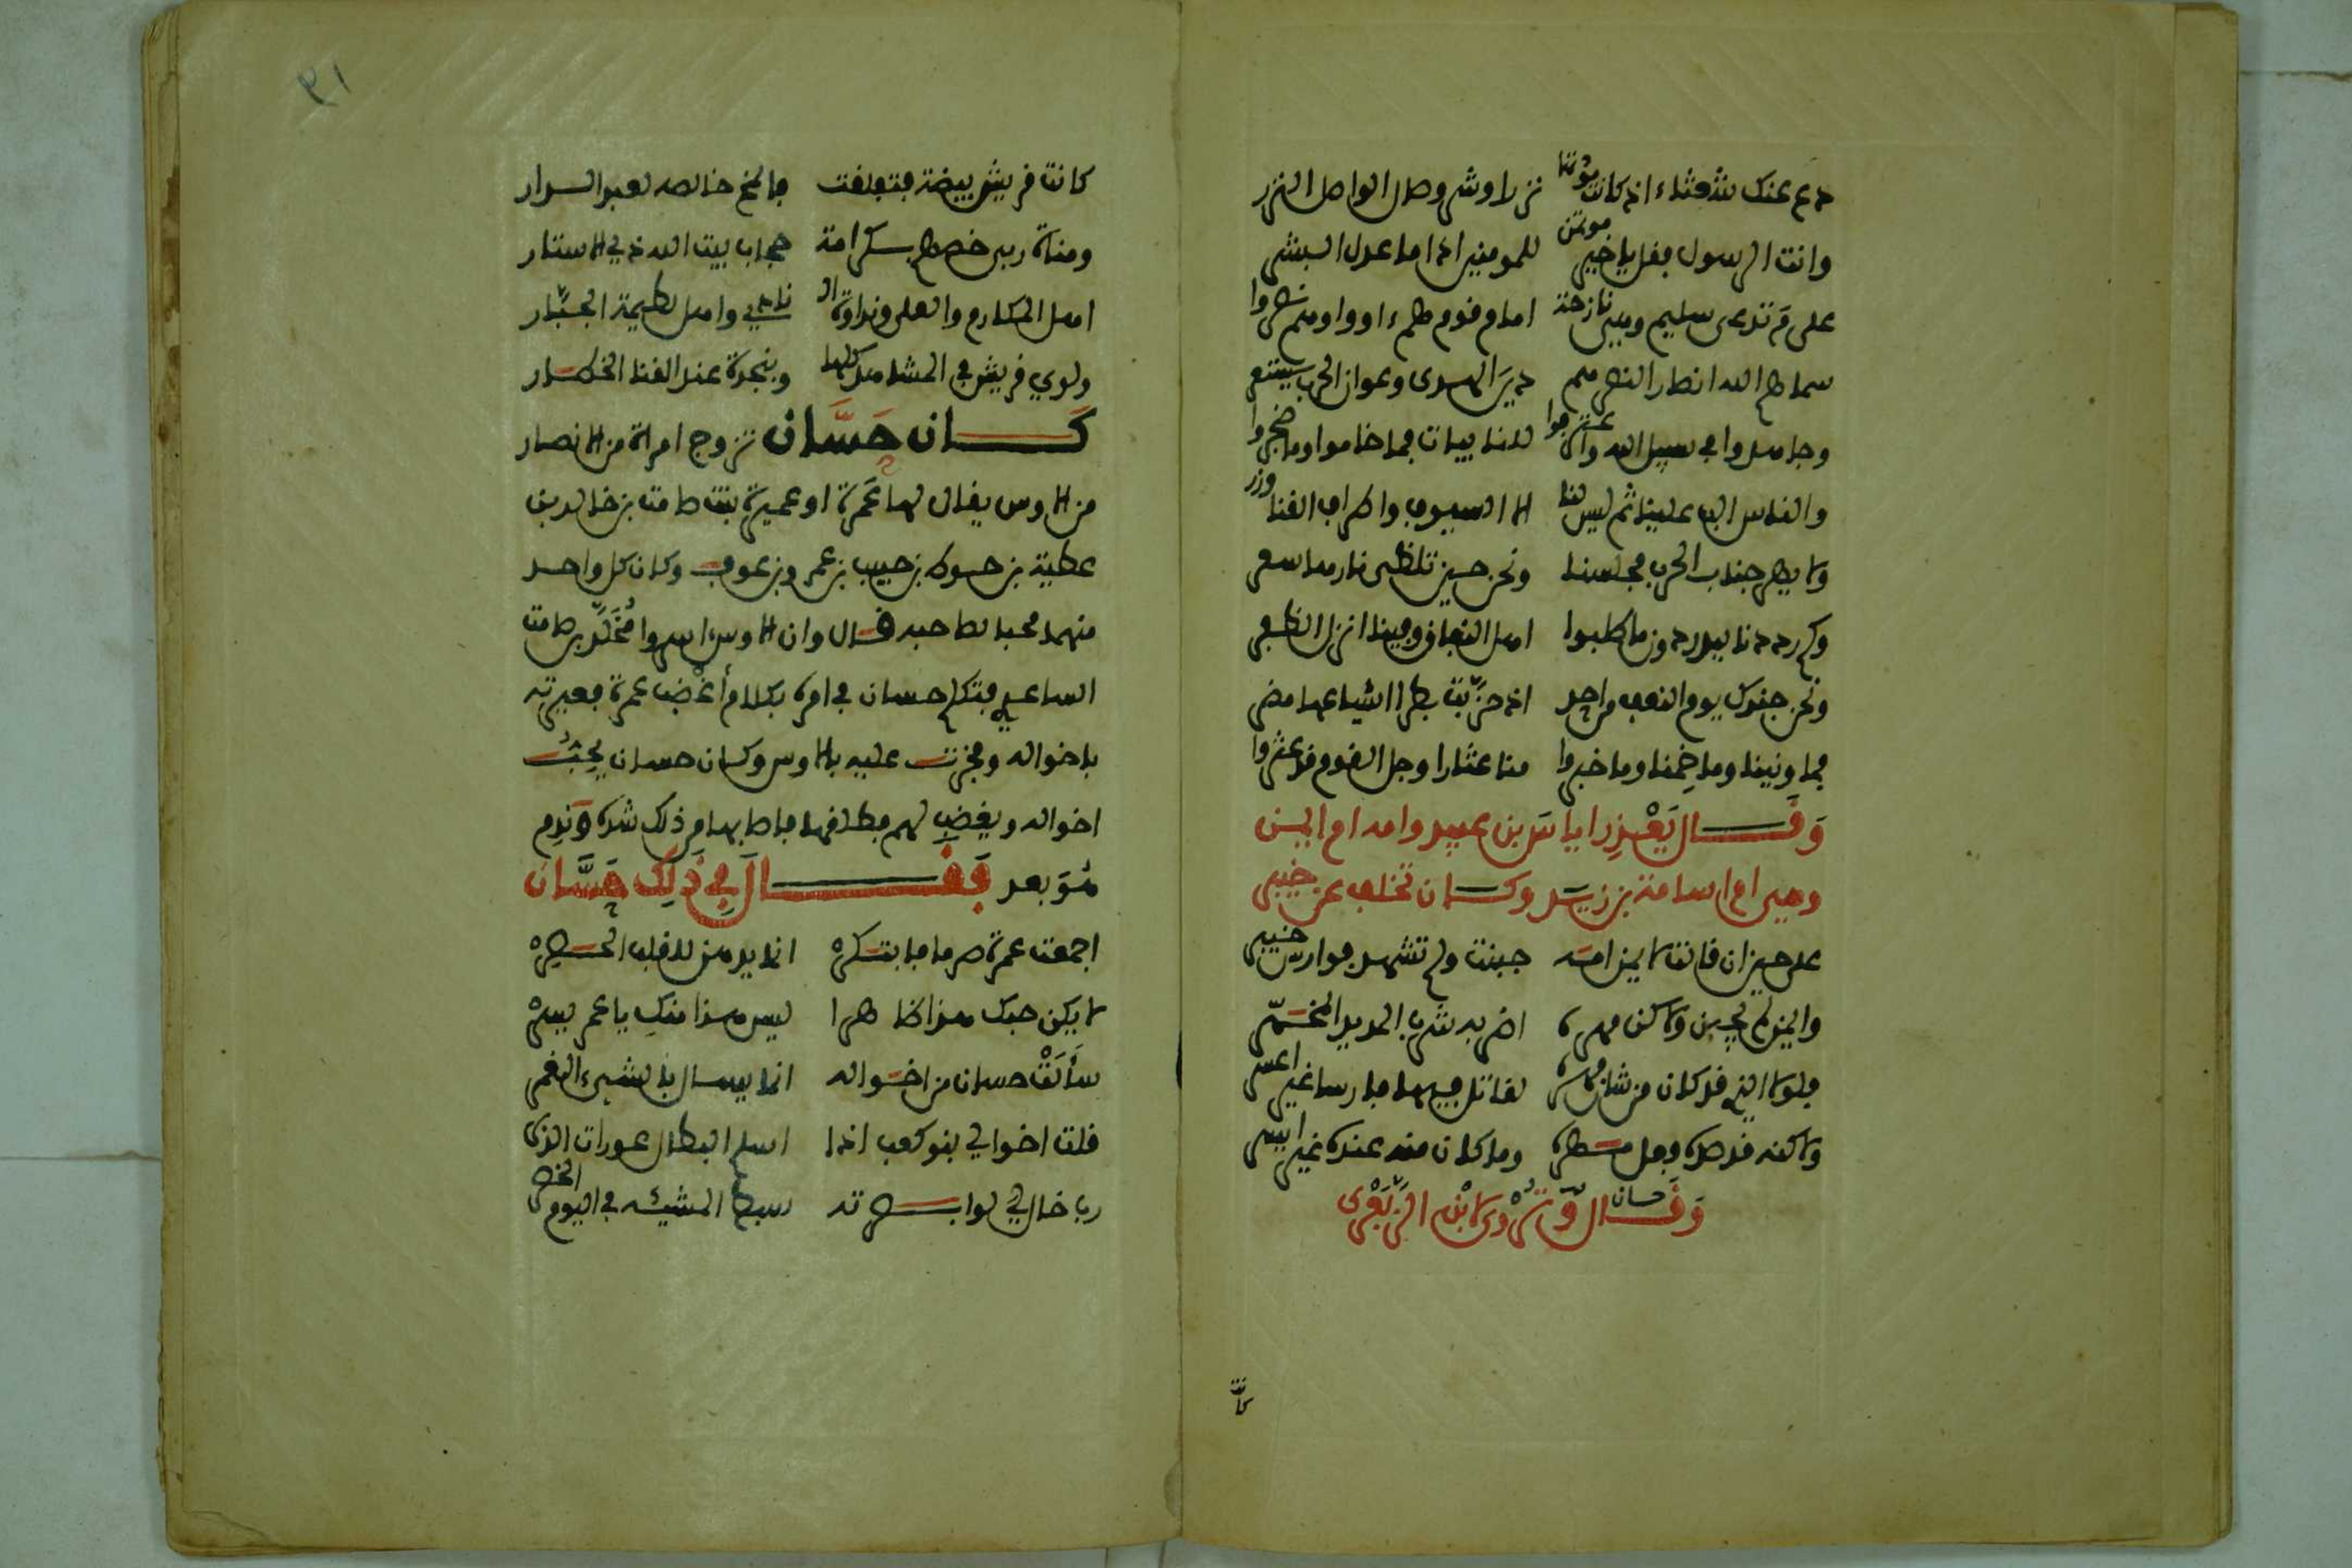 دع عنك شعثاء اذ كانت موتتها نزرا وشر وصال الواصل النزر
وانت الرسول فقل يا خير موتمن للمومنين اذا ما عدل البشر
على م تدعى سليم وهي نازحة امام قوم هم ءاووا وهم نصروا
سماهم الله انصار النصرهم دين الهدى وعوان الحرب تستعر
وجاهدوا في سبيل الله واعترفوا للنايبات فما خاموا وما ضجروا
والناس الب علينا ثم ليس لنا الا السيوف واطراف القنا وزر
ولا يهر جناب الحرب مجلسنا ونحن حين تلظى نارها سعر
وكم رددنا ببدر دون ما طلبوا اهل النفاق وفينا انزل الظفر
ونحن جندك يوم النعف من احد اذ حزبت بطرا اشياعها مضر
فما ونينا وما خمنا وما خبروا منا عثارا وجل القوم قد عثروا
وقال يعذر ايمن بن عبيد وامه ام ايمن
وهي ام اسامة بن زيد وكان تخلف عن خيبر
على حين ان قالت لايمن امه جبنت ولم تشهد فوارس خيبر
وايمن لم يجبن ولاكن مهره اضر به شرب المديد المخمر
فلولا الذي قد كان من شان مهره لقاتل فيها فارسا غير اعسر
ولاكنه قد صده فعل مهره وما كان منه عنده غير ايسر
وقال حسان وتروى لابن الزبعرى
كانت
٣١
كانت قريش بيضة فتفلقت فالمخ خالصه لعبد الدار
ومناة ربي خصهم بكرامة حجاب بيت الله ذي الاستار
اهل المكارم والعلى ونداوة ال نادي واهل لطيمة الجبار
ولوي قريش في المشاهد كلها وبنجدة عند القنا الخطار
كان حسان تزوج امراة من الانصار
من الاوس يقال لها عمرة او عميرة بنت صامت بن خالد بن
عطية بن حوط بن حبيب بن عمرو بن عوف وكان كل واحد
منهما محبا لصاحبه قال وان الاوس اسروا مخلد بن صامت
الساعدي فتكلم حسان في امره بكلام أغضب عمرة فعيرته
باخواله وفخرت عليه بالاوس وكان حسان يحب
اخواله ويغضب لهم فطلقها فاصابها من ذلك شدة وندم
هو بعد فقال في ذلك حسان
اجمعت عمرة صرما فابتكر انما يدهن للقلب الحصر
لا يكن حبك هذا ظاهرا ليس هذا منك يا عمر بسر
سألت حسان من اخواله انما يسال بالشيء الغمر
قلت اخوالي بنو كعب اذا اسلم الابطال عورات الدبر
رب خال لي لو ابصرته سبط المشية في اليوم الخصر